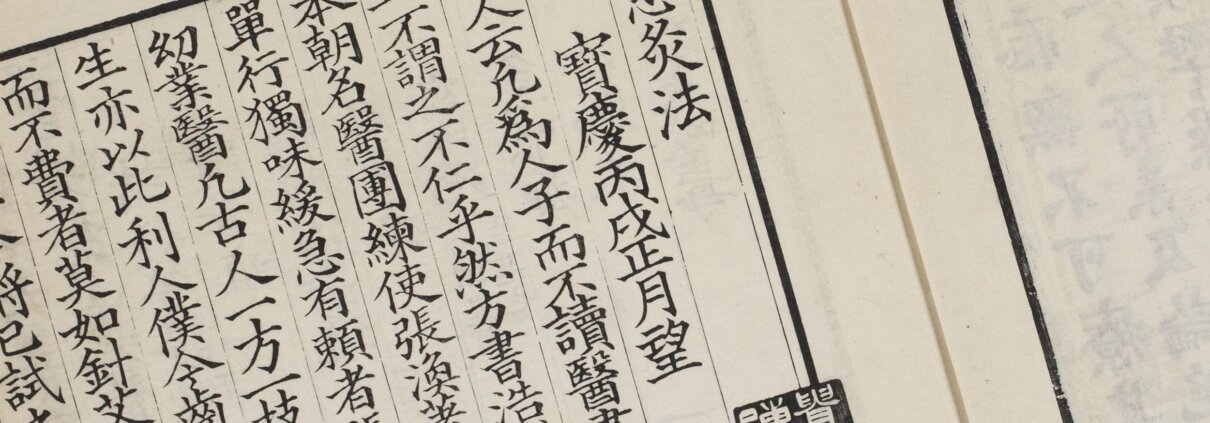 灸法
寶慶丙戌正月望
人云凡為人子而不讀醫書
不謂之不仁乎然方書浩
本朝名醫團練使張渙著
單行獨味緩急有賴者
幼業醫凡古人一方一技
生亦以此利人僕今齒
而不費者莫如針艾
將已試